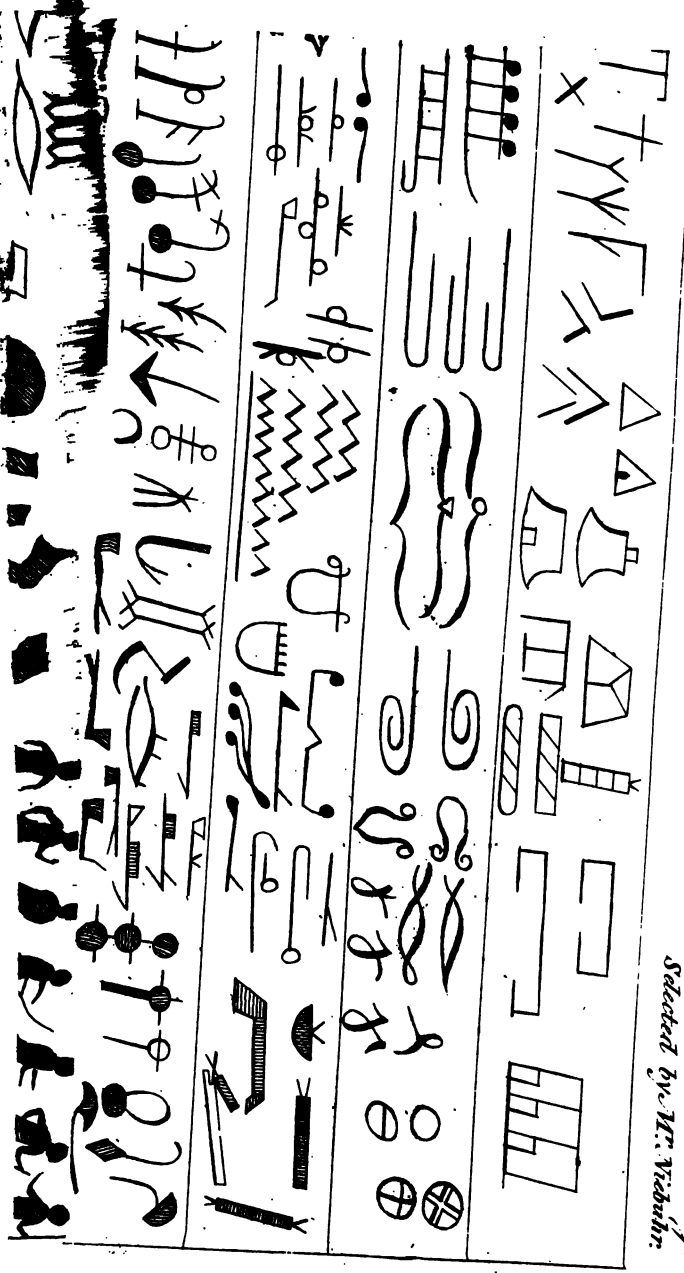 Selected by M.ʳ Niebuhr.